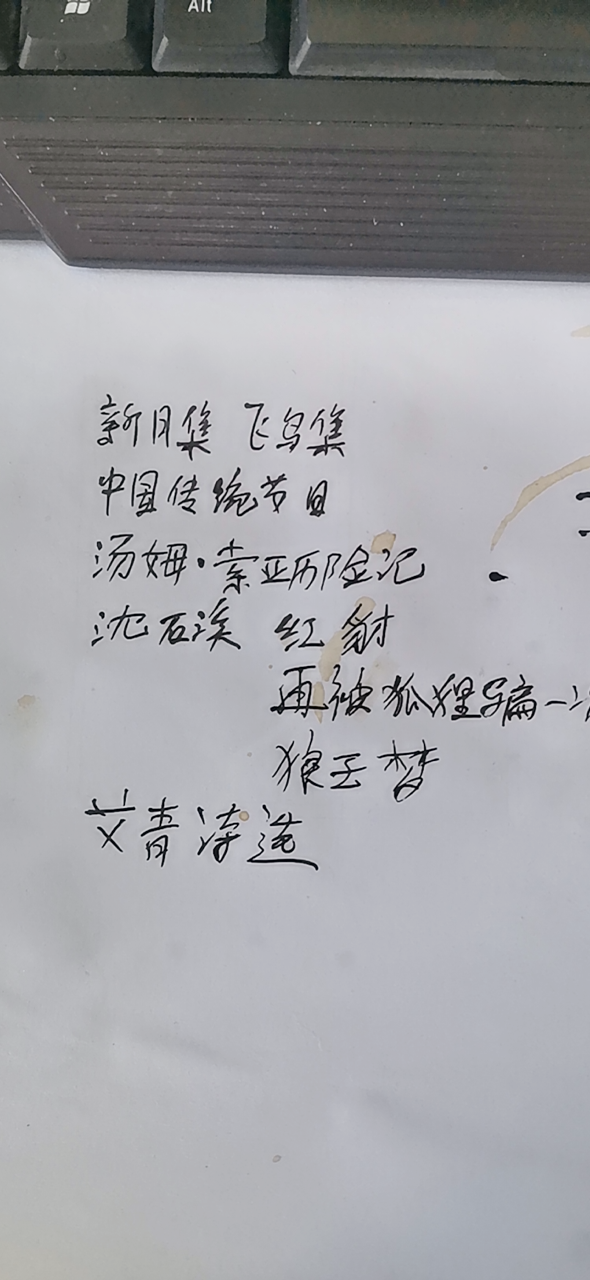 Alt
新月集 飞鸟集
中国传统节日
汤姆·索亚历险记
沈石溪 红豺
再被狐狸骗一次
狼王梦
艾青诗选